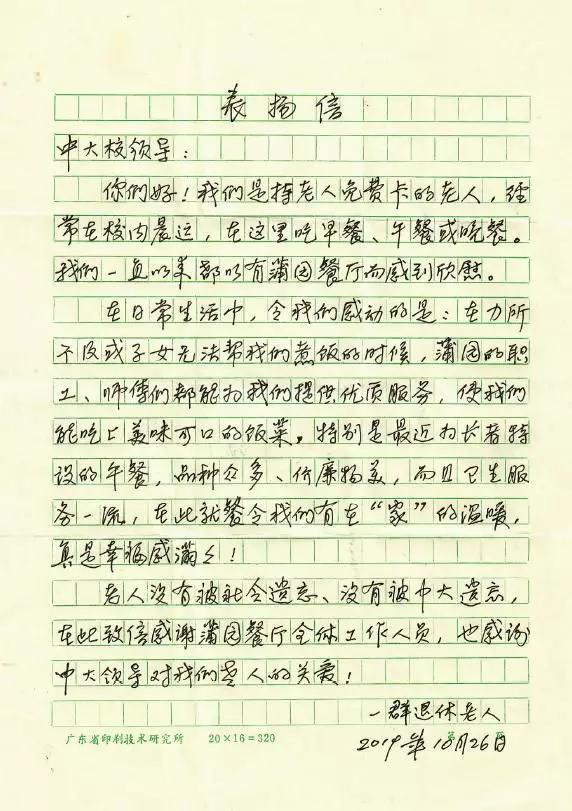 表扬信
中大校领导：
你们好！我们是持老人免费卡的老人，经
常在校内晨运，在这里吃早餐、午餐或晚餐。
我们一直以来都以有蒲园餐厅而感到欣慰。
在日常生活中，令我们感动的是：在力所
不及或子女无法帮我们煮饭的时候，蒲园的职
工、师傅们都能为我们提供优质服务，使我们
能吃上美味可口的饭菜。特别是最近为长者特
设的午餐，品种众多、价廉物美，而且卫生服
务一流，在此就餐令我们有在“家”的温暖，
真是幸福感满々！
老人没有被社会遗忘、没有被中大遗忘，
在此致信感谢蒲园餐厅全体工作人员，也感谢
中大领导对我们老人的关爱！
一群退休老人
广东省印刷技术研究所 20×16=320 第 页
2019年10月26日